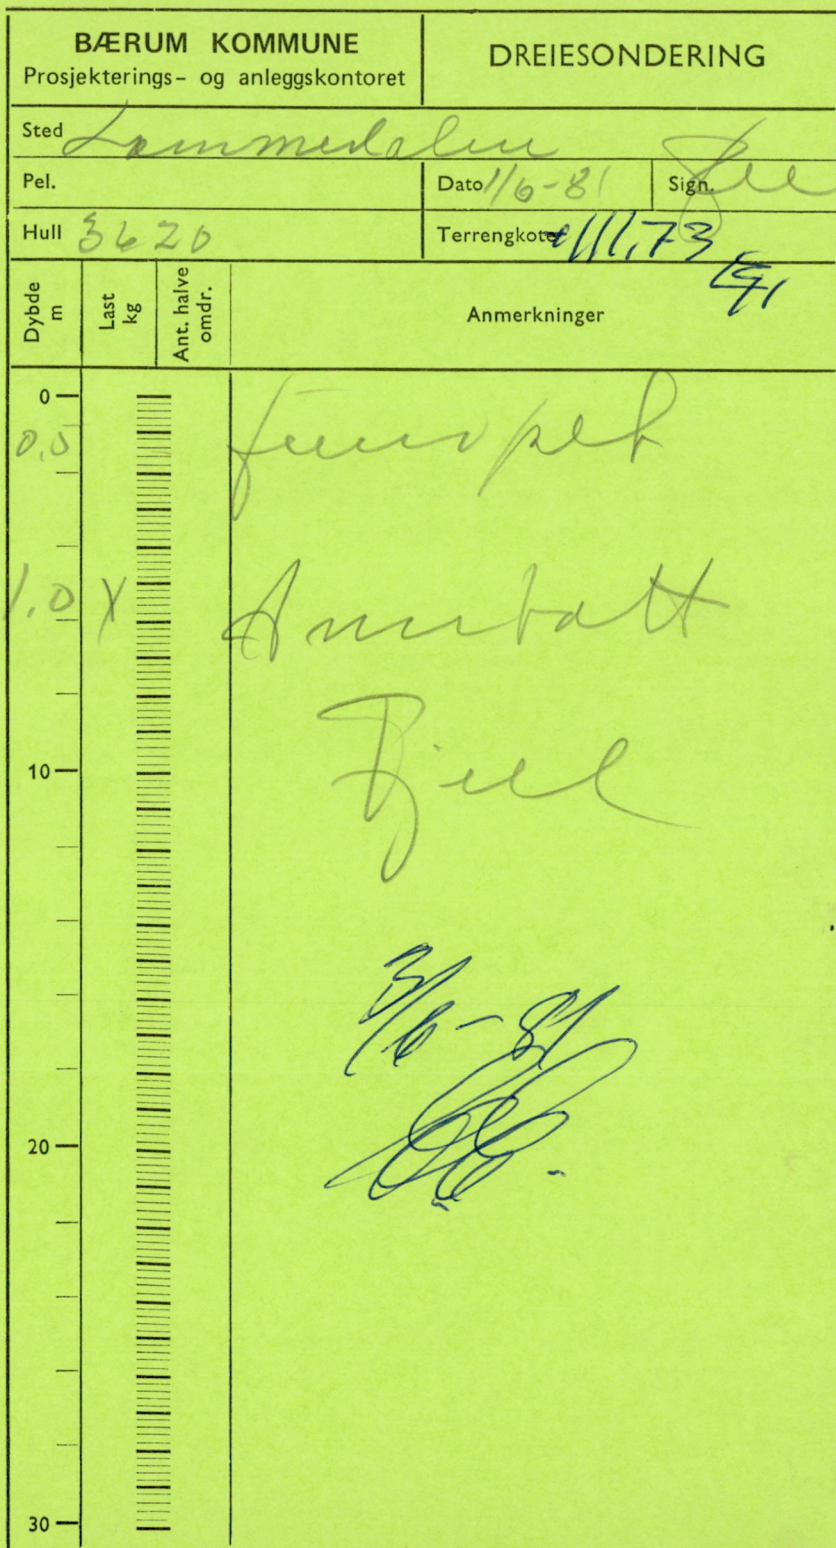 BÆRUM KOMMUNE
Prosjekterings- og anleggskontoret
DREIESONDERING
Sted Lommedalen
Pel.
Dato 1/6-81
Sign.
Hull 3620
Terrengkote +111,73
Dybde m
Last kg
Ant. halve omdr.
Anmerkninger
0
0,5
1,0 X Antatt
Fjell
10
3/6-81
20
30